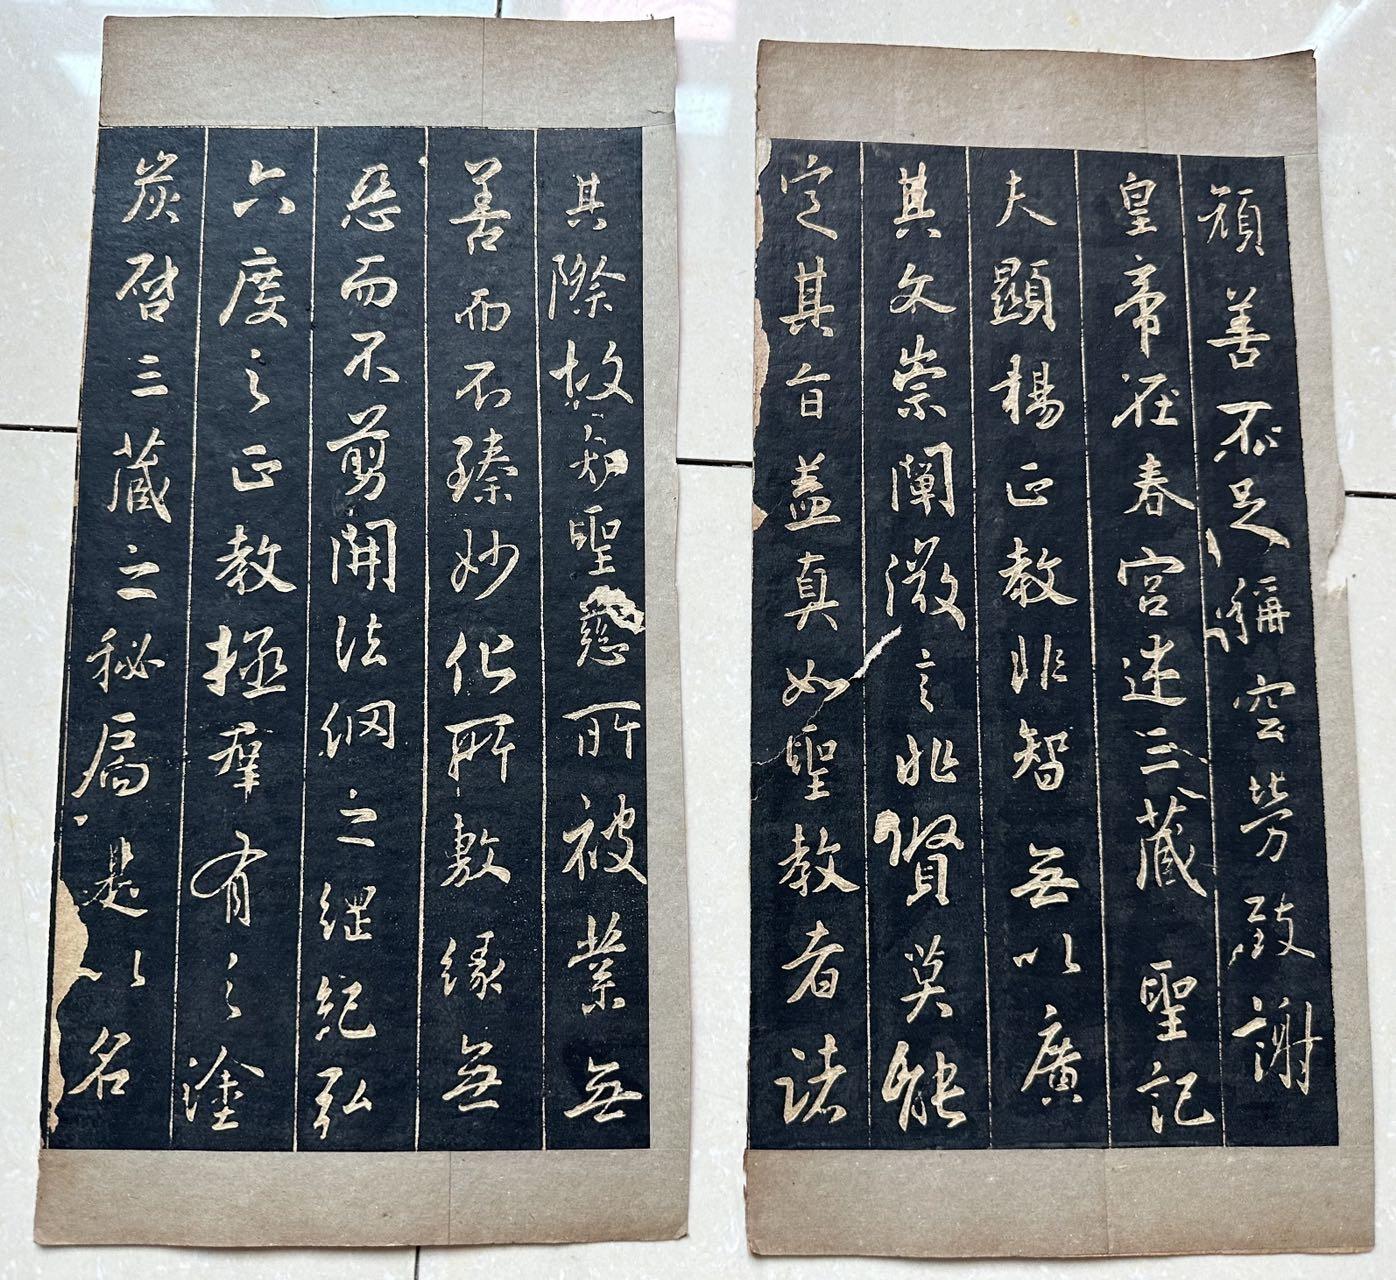 頽善不足稱空勞致謝
皇帝在春宮述三藏聖記
夫顯楊正教非智無以廣
其文崇闡微言非賢莫能
定其旨蓋真如聖教者諸
其際故知聖慈所被業無
善而不臻妙化所敷緣無
惡而不剪開法網之綱紀弘
六度之正教拯群有之塗
炭啓三藏之秘扃是以名